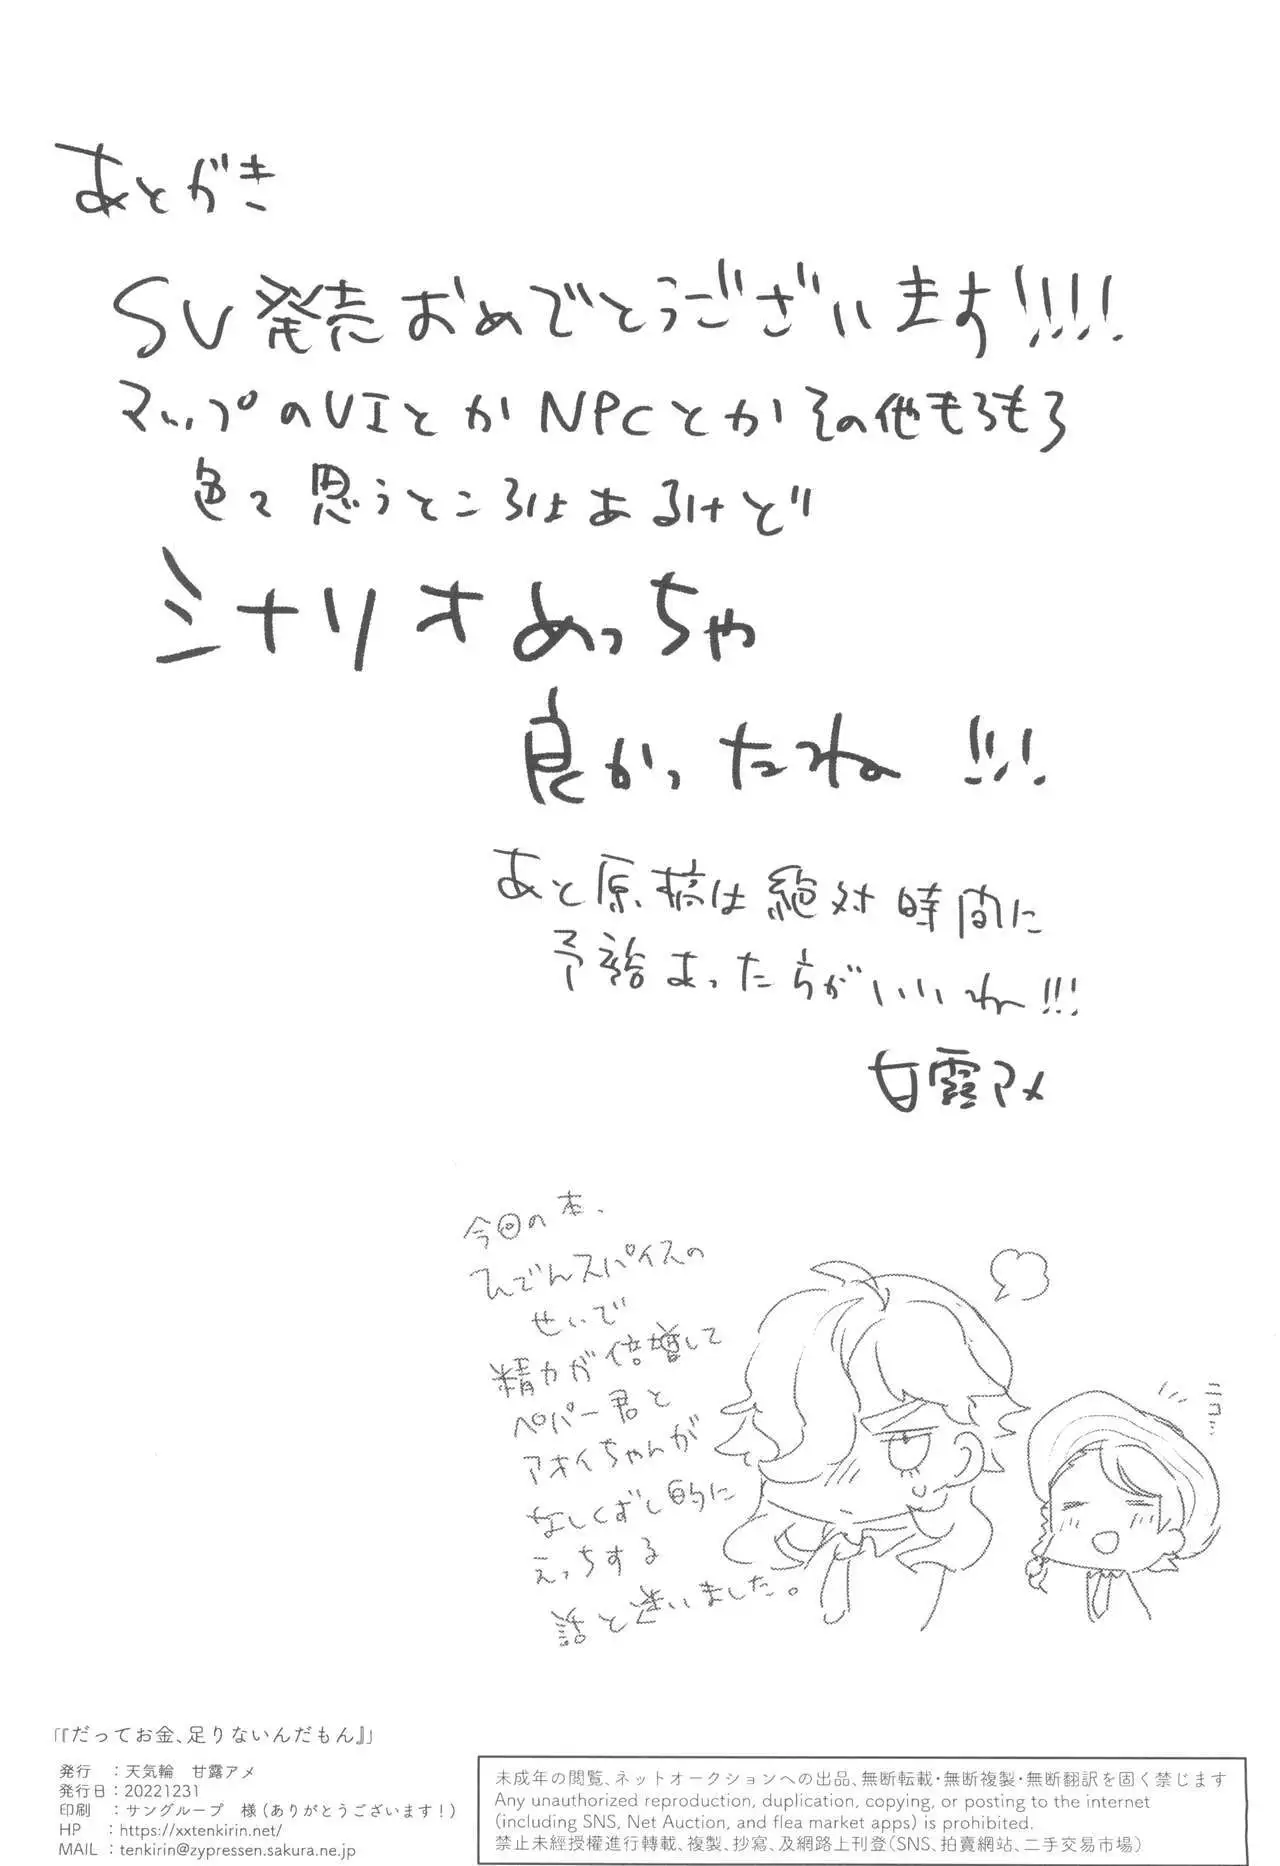 あとがき
SV発売おめでとうございます!!!!
マップのUIとかNPCとかその他もろもろ
色々思うところはあるけど
シナリオめっちゃ
良かったね!!!
あと原稿は絶対時間に
予裕あった方がいいね!!!
甘露アメ
今回の本、
ひでんスパイスの
せいで
精力が倍増して
ペパー君と
アオイちゃんが
なしくずし的に
えっちする
話と迷いました。
ニコ…
「『だってお金、足りないんだもん』」
発行　：天気輪　甘露アメ
発行日：20221231
印刷　：サングループ　様（ありがとうございます！）
HP　：https://xxtenkirin.net/
MAIL　：tenkirin@zypressen.sakura.ne.jp
未成年の閲覧、ネットオークションへの出品、無断転載・無断複製・無断翻訳を固く禁じます
Any unauthorized reproduction, duplication, copying, or posting to the internet
(including SNS, Net Auction, and flea market apps) is prohibited.
禁止未經授權進行轉載、複製、抄寫、及網路上刊登（SNS、拍賣網站、二手交易市場）